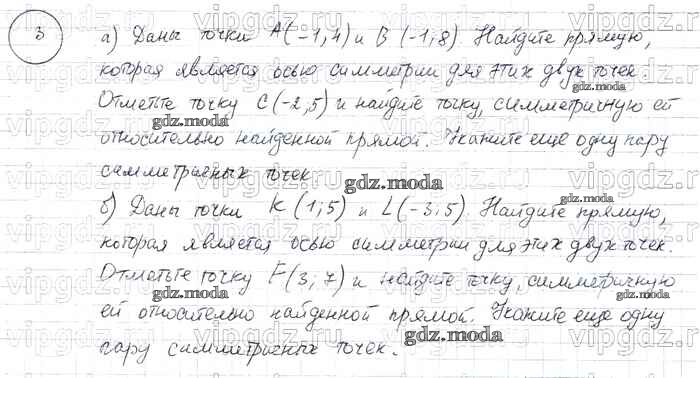 3
а) Даны точки A(-1,4) и B (-1;8). Найдите прямую,
которая является осью симметрии для этих двух точек.
Отметьте точку C(-2,5) и найдите точку, симметричную ей
относительно найденной прямой. Укажите еще одну пару
симметричных точек
б) Даны точки K (1;5) и L(-3;5). Найдите прямую,
которая является осью симметрии для этих двух точек.
Отметьте точку F(3;7) и найдите точку, симметричную
ей относительно найденной прямой. Укажите еще одну
пару симметричных точек.
gdz.moda
gdz.moda
gdz.moda
gdz.moda
gdz.moda
gdz.moda
gdz.moda
vipgdz